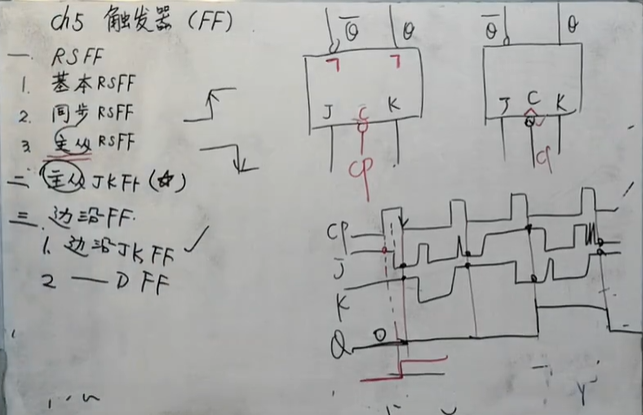 ch5 触发器 (FF)
一 RSFF
1. 基本RSFF
2. 同步RSFF
3. 主从RSFF
二 主从JKFF (☆)
三 边沿FF.
1. 边沿JKFF ✓
2 — D FF
Q̅ Q
J C K
CP
Q̅ Q
J C K
CP
J
K
Q 0